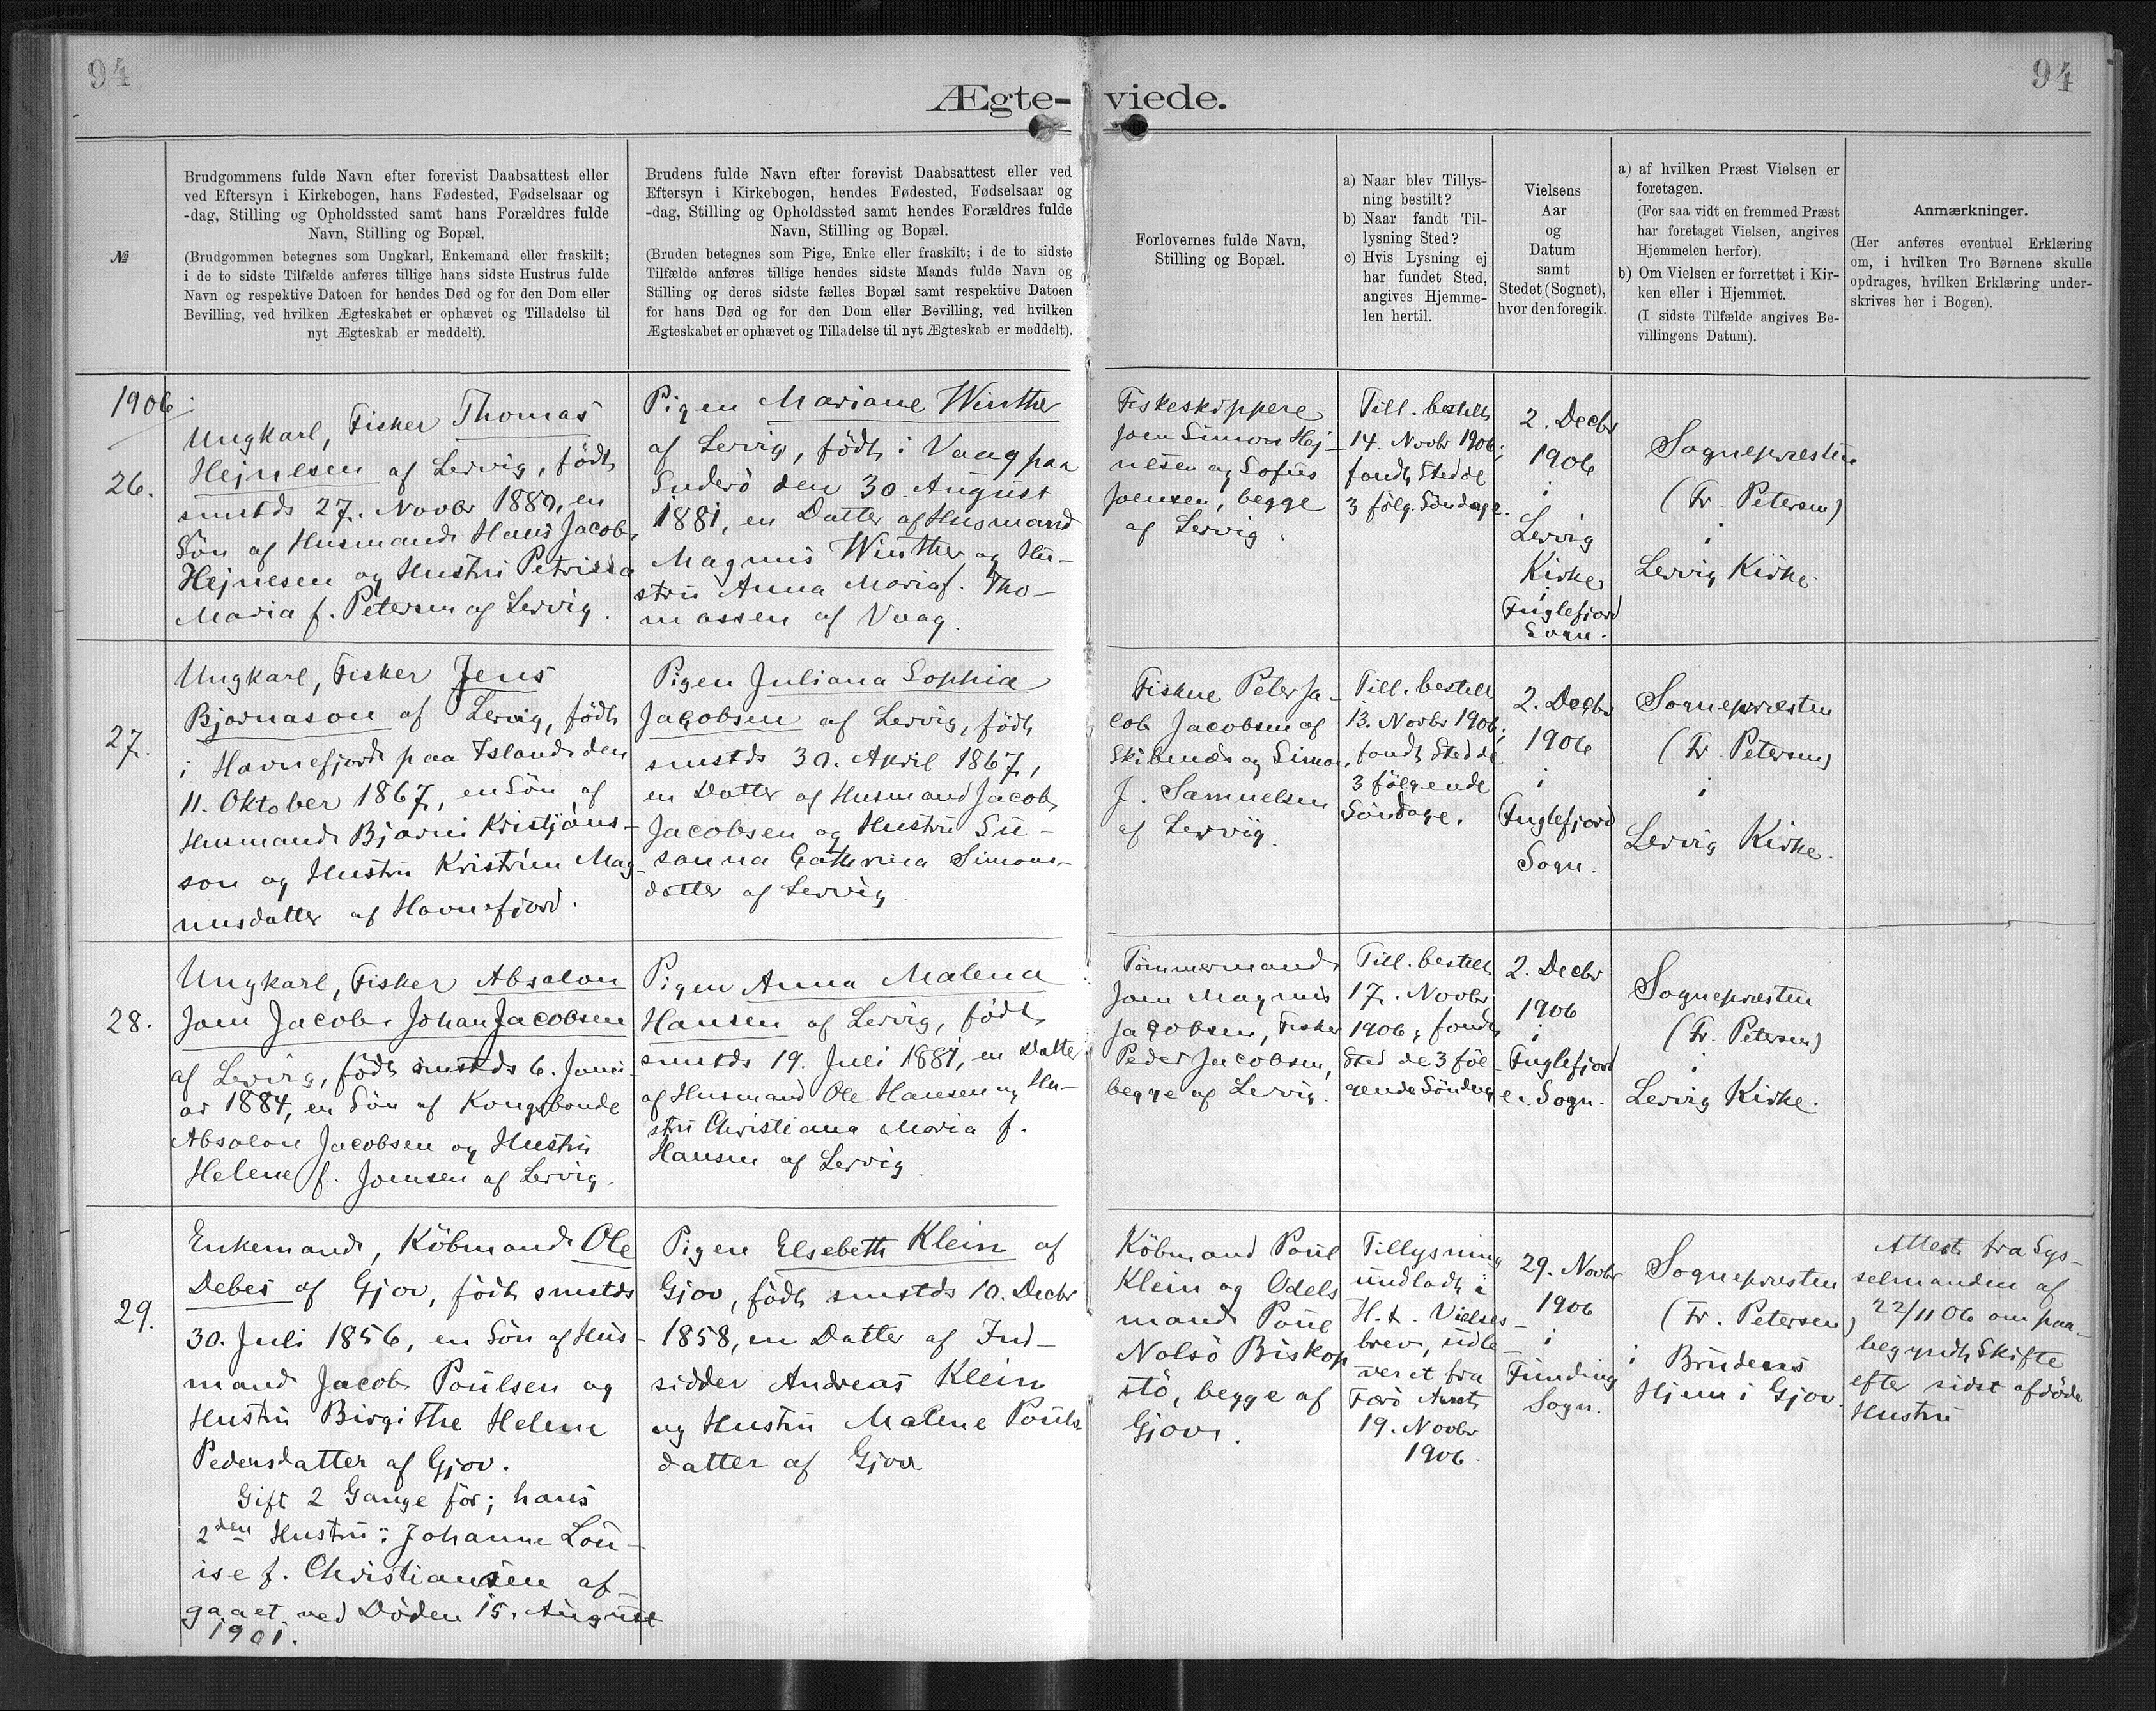 94
94
Ægte- viede.
№
Brudgommens fulde Navn efter forevist Daabsattest eller
ved Eftersyn i Kirkebogen, hans Fødested, Fødselsaar og
-dag, Stilling og Opholdssted samt hans Forældres fulde
Navn, Stilling og Bopæl.
(Brudgommen betegnes som Ungkarl, Enkemand eller fraskilt;
i de to sidste Tilfælde anføres tillige hans sidste Hustrus fulde
Navn og respektive Datoen for hendes Død og for den Dom eller
Bevilling, ved hvilken Ægteskabet er ophævet og Tilladelse til
nyt Ægteskab er meddelt).
Brudens fulde Navn efter forevist Daabsattest eller ved
Eftersyn i Kirkebogen, hendes Fødested, Fødselsaar og
-dag, Stilling og Opholdssted samt hendes Forældres fulde
Navn, Stilling og Bopæl.
(Bruden betegnes som Pige, Enke eller fraskilt; i de to sidste
Tilfælde anføres tillige hendes sidste Mands fulde Navn og
Stilling og deres sidste fælles Bopæl samt respektive Datoen
for hans Død og for den Dom eller Bevilling, ved hvilken
Ægteskabet er ophævet og Tilladelse til nyt Ægteskab er meddelt).
Forlovernes fulde Navn,
Stilling og Bopæl.
a) Naar blev Tillys-
ning bestilt?
b) Naar fandt Til-
lysning Sted?
c) Hvis Lysning ej
har fundet Sted,
angives Hjemme-
len hertil.
Vielsens
Aar
og
Datum
samt
Stedet (Sognet),
hvor den foregik.
a) af hvilken Præst Vielsen er
foretagen.
(For saa vidt en fremmed Præst
har foretaget Vielsen, angives
Hjemmelen herfor).
b) Om Vielsen er forrettet i Kir-
ken eller i Hjemmet.
(I sidste Tilfælde angives Be-
villingens Datum).
Anmærkninger.
(Her anføres eventuel Erklæring
om, i hvilken Tro Børnene skulle
opdrages, hvilken Erklæring under-
skrives her i Bogen).
1906.
26.
Ungkarl, Fisker Thomas
Hejnesen af Lervig, født
smstds 27. Novbr 1880, en
Søn af Husmand Hans Jacob
Hejnesen og Hustru
Maria f. Petersen af Lervig.
Pigen Mariane Winther
af Lervig, født i Vaag paa
Suderö den 30. August
1881, en Datter af Husmand
Magnus Winther og Hu-
stru Anna Maria f. Tho-
massen af Vaag.
Fiskeskippere
Joen Simon Hej-
nesen og Sofus
Joensen, begge
af Lervig.
Till. bestilt
14. Novbr 1906;
fandt Sted de
3 følg. Søndage.
2. Decbr
1906
i
Lervig
Kirke
i
Fuglefjord
Sogn.
Sognepræsten
(Fr. Petersen)
i
Lervig Kirke.
27.
Ungkarl, Fisker Jens
Bjarnason af Lervig, født
i Havnefjord paa Island den
11. Oktober 1867, en Søn af
Husmand Bjarni Kristjáns-
son og Hustru Kristrún Mag-
nusdatter af Havnefjord.
Pigen Juliana Sophia
Jacobsen af Lervig, født
smstds 30. April 1867,
en Datter af Husmand Jacob
Jacobsen og Hustru Su-
sanna Cathrina Simons-
datter af Lervig.
Fiskere Peter Ja-
cob Jacobsen af
Skibenæs og Simon
J. Samuelsen
af Lervig.
Till. bestilt
13. Novbr 1906;
fandt Sted de
3 følgende
Søndage.
2. Decbr
1906
i
Fuglefjord
Sogn.
Sognepræsten
(Fr. Petersen)
i
Lervig Kirke.
28.
Ungkarl, Fisker Absalon
Joen Jacob Johan Jacobsen
af Lervig, født smstds 6. Janu-
ar 1884, en Søn af Kongsbonde
Absalon Jacobsen og Hustru
Helene f. Joensen af Lervig.
Pigen Anna Malena
Hansen af Lervig, født
smstds 19. Juli 1881, en Datter
af Husmand Ole Hansen og Hu-
stru Christiana Maria f.
Hansen af Lervig.
Tømmermand
Joen Magnus
Jacobsen, Fisker
Peder Jacobsen,
begge af Lervig.
Till. bestilt
17. Novbr
1906; fandt
Sted de 3 føl-
gende Søndage.
2. Decbr
1906
i
Fuglefjord
Sogn.
Sognepræsten
(Fr. Petersen)
i
Lervig Kirke.
29.
Enkemand, Købmand Ole
Debes af Gjov, født smstds
30. Juli 1856, en Søn af Hus-
mand Jacob Poulsen og
Hustru Birgithe Helene
Pedersdatter af Gjov.
Gift 2 Gange før; hans
2den Hustru: Johanne Lou-
ise f. Christiansen af-
gaaet ved Døden 15. August
1901.
Pigen Elsebeth Klein af
Gjov, født smstds 10. Decbr
1858, en Datter af Ind-
sidder Andreas Klein
og Hustru Malene Pouls
datter af Gjov
Købmand Poul
Klein og Odels
mand Poul
Nolsö Biskop
stö, begge af
Gjov.
Tillysning
undladt i
H. t. Vielses-
brev, udle-
veret fra
Færø Amt
19. Novbr
1906.
29. Novbr
1906
i
Funding
Sogn.
Sognepræsten
(Fr. Petersen)
i Brudens
Hjem i Gjov.
Attest fra Sys-
selmanden af
22/11 06 om paa-
begyndt Skifte
efter sidst afdøde
Hustru